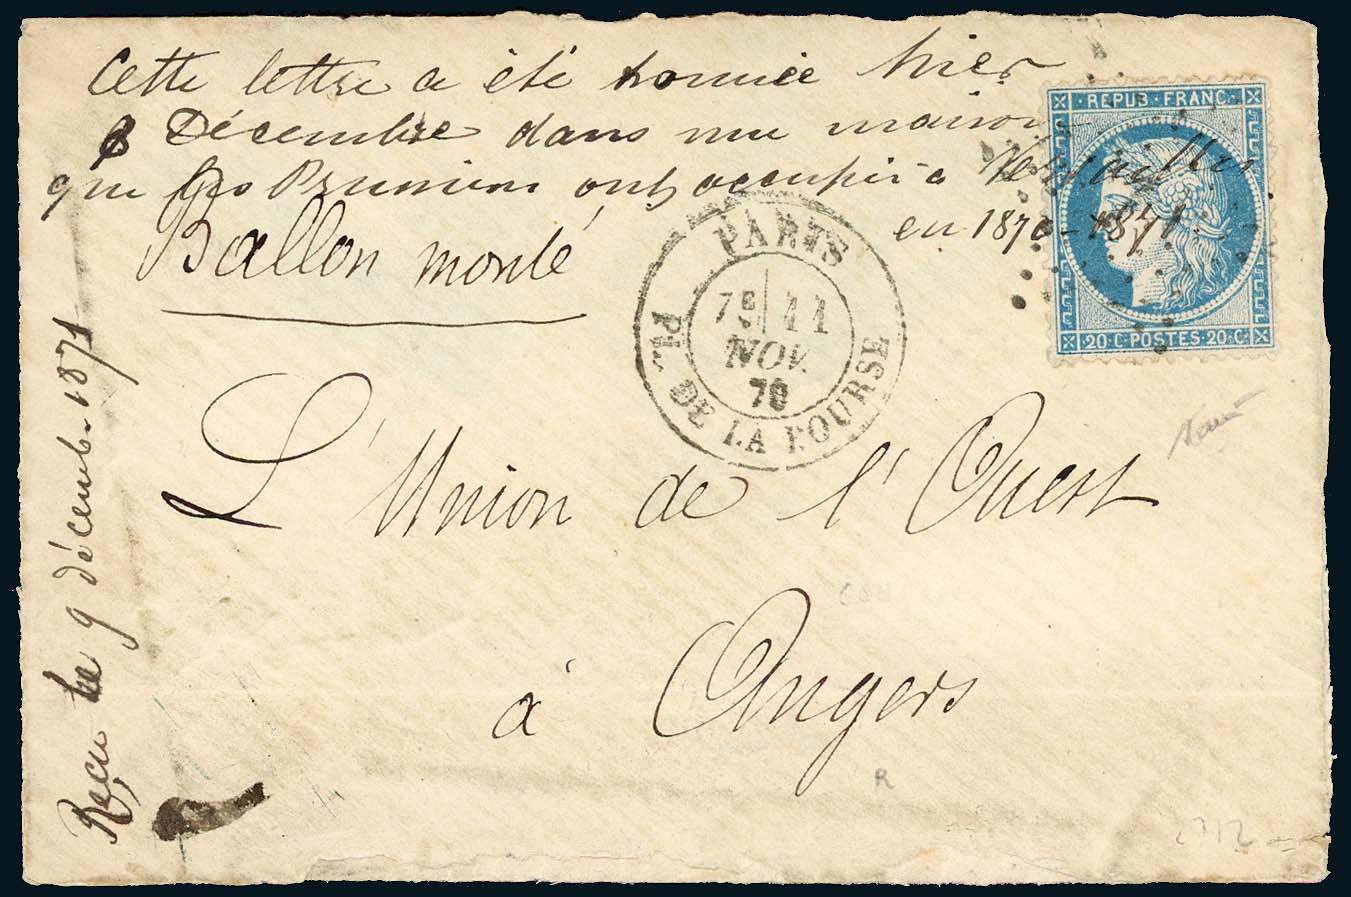 Cette lettre a été trouvée hier
8 Décembre dans ma maison
que les Prussiens ont occupée à Versailles
en 1870-1871.
Ballon monté
REPUB·FRANC
20·C·POSTES·20·C
PARIS
7E 11
NOV.
70
PL. DE LA BOURSE
L'Union de l'Ouest
à Angers
Reçu le 9 décemb. 1871
R